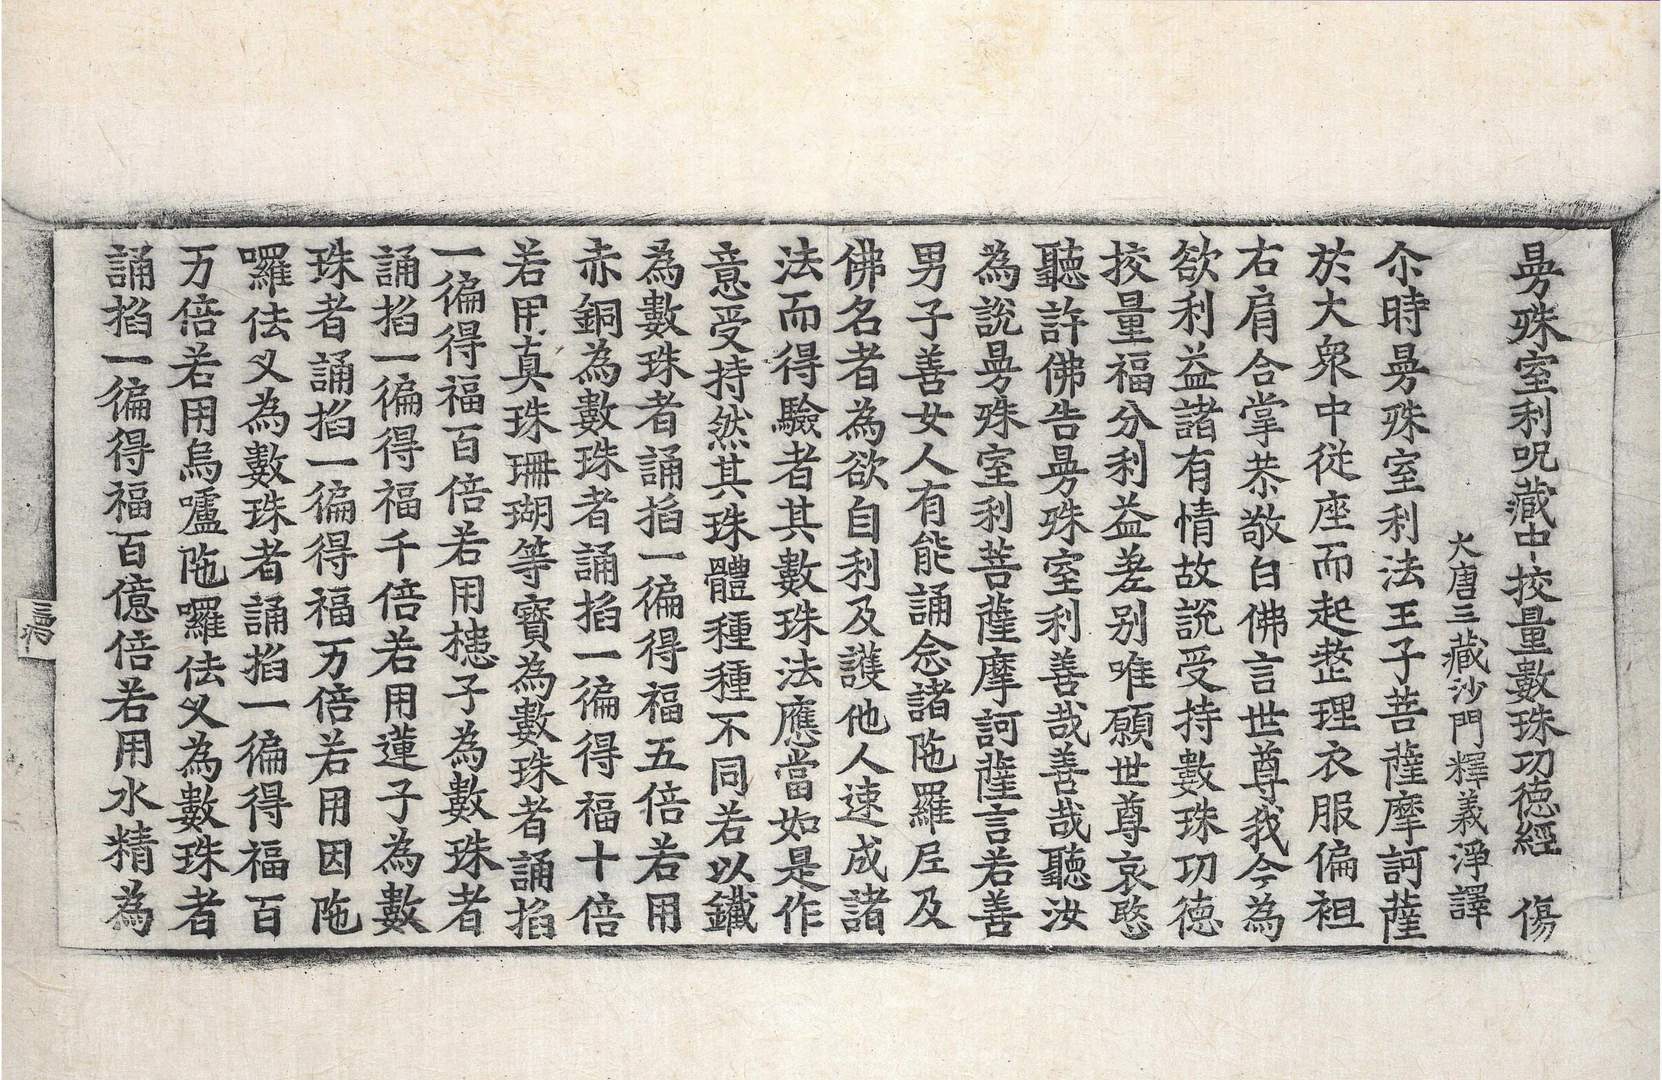 曼殊室利呪藏中挍量數珠功徳經 傷
大唐三藏沙門釋義淨譯
尒時曼殊室利法王子菩薩摩訶薩
於大衆中從座而起整理衣服偏袒
右肩合掌恭敬白佛言世尊我今為
欲利益諸有情故說受持數珠功徳
挍量福分利益差别唯願世尊哀愍
聽許佛告曼殊室利善哉善哉聽汝
為說曼殊室利菩薩摩訶薩言若善
男子善女人有能誦念諸陁羅尼及
佛名者為欲自利及護他人速成諸
法而得驗者其數珠法應當如是作
意受持然其珠體種種不同若以鐵
為數珠者誦掐一徧得福五倍若用
赤銅為數珠者誦掐一徧得福十倍
若用真珠珊瑚等寶為數珠者誦掐
一徧得福百倍若用槵子為數珠者
誦掐一徧得福千倍若用蓮子為數
珠者誦掐一徧得福万倍若用因陁
囉佉叉為數珠者誦掐一徧得福百
万倍若用烏嚧陁囉佉叉為數珠者
誦掐一徧得福百億倍若用水精為